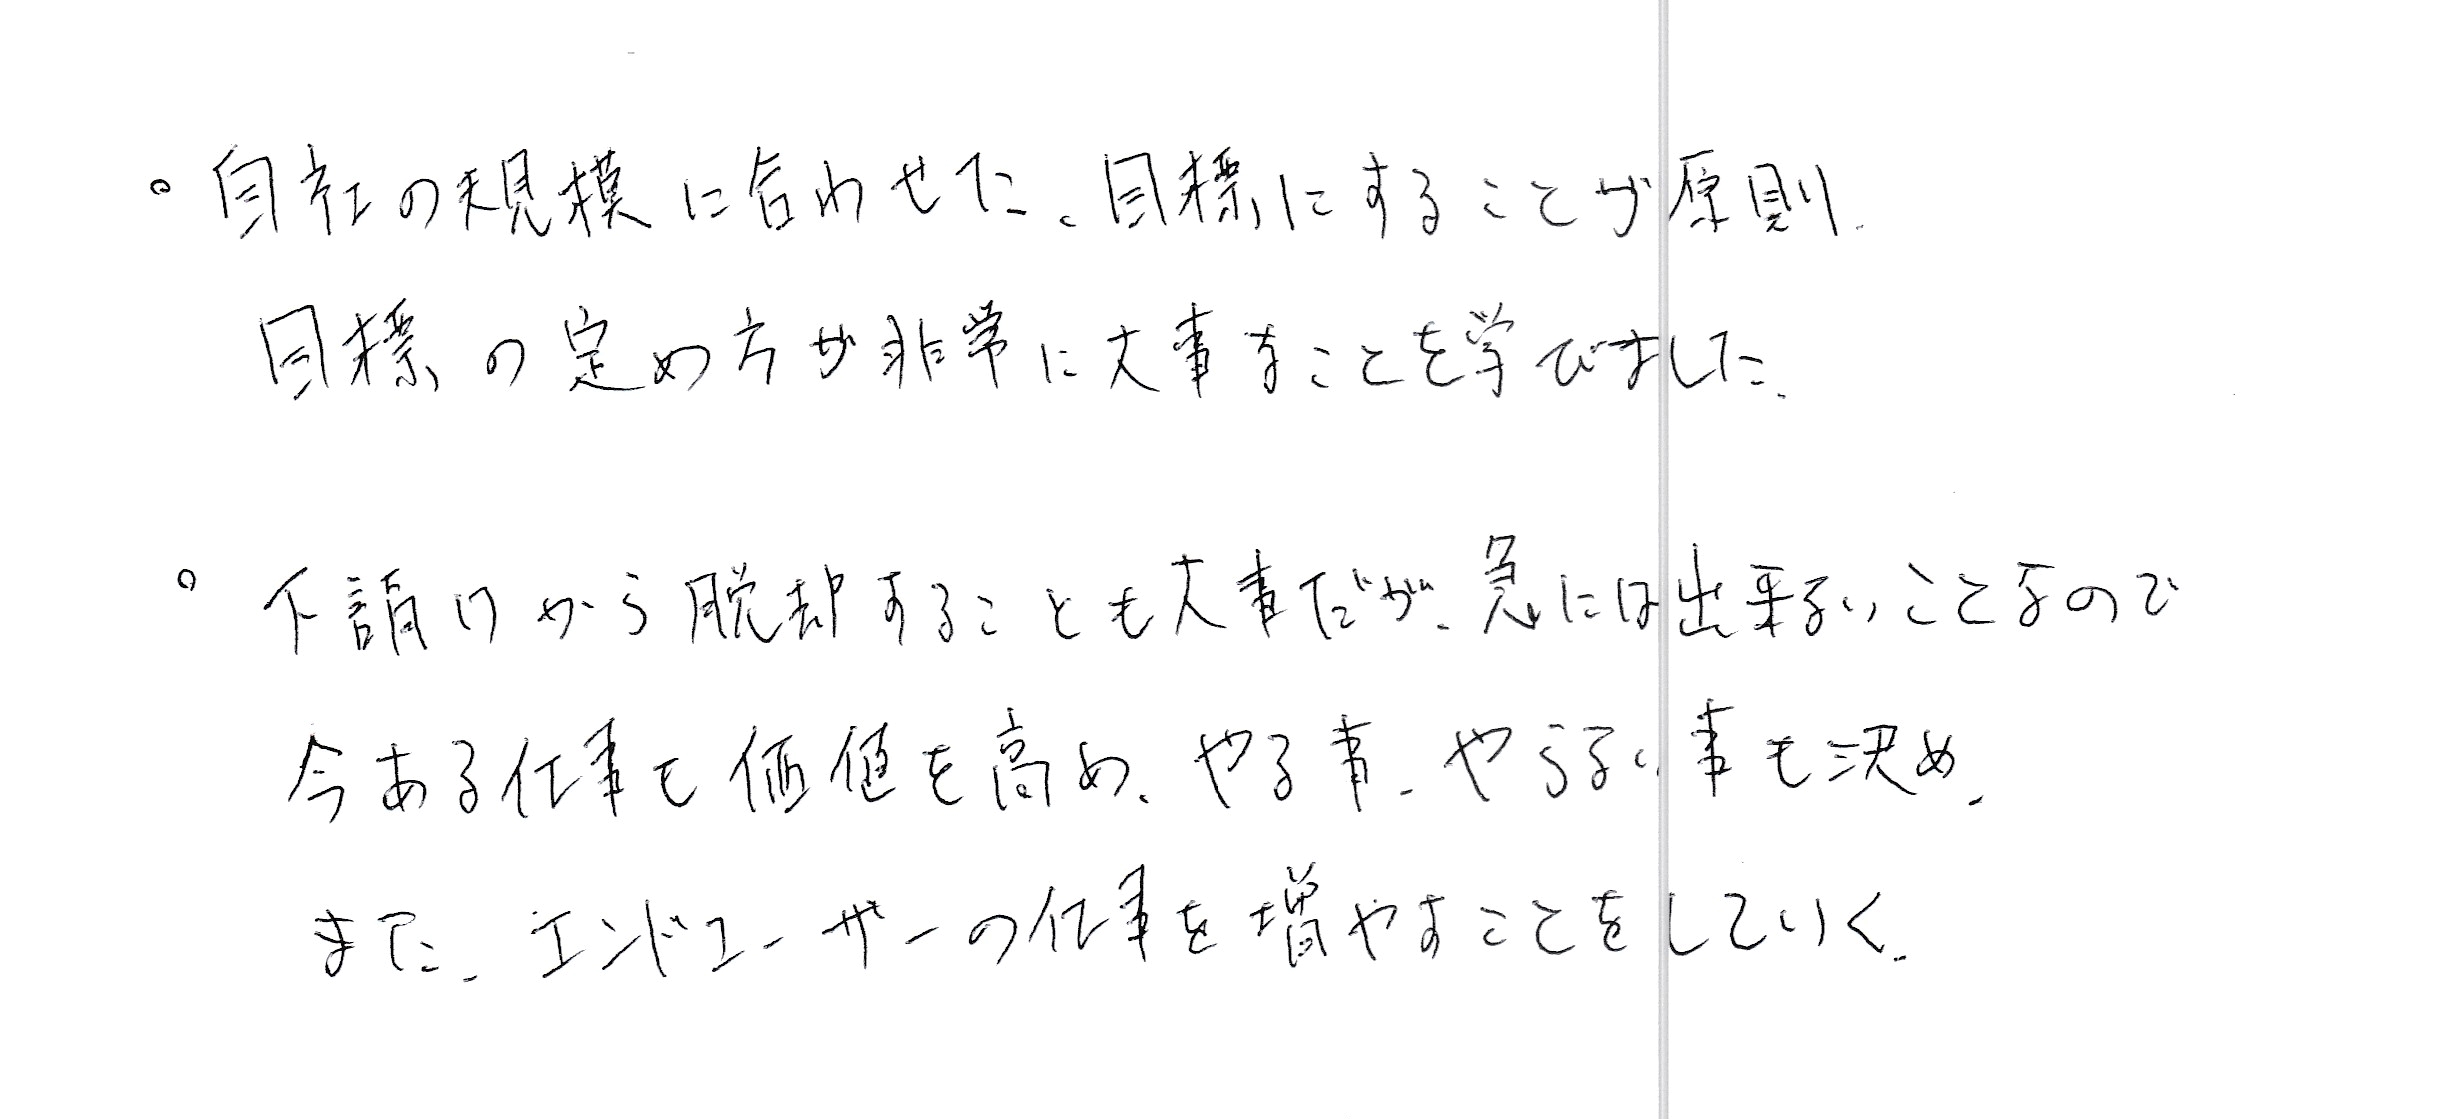 。自社の規模に合わせた、目標にすることが原則.
目標の定め方が非常に大事なことを学びました.
。下請けから脱却することも大事だが、急には出来ないことなので
今ある仕事も価値を高め、やる事、やらない事も決め、
また、エンドユーザーの仕事を増やすことをしていく.